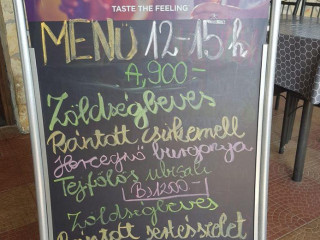 TASTE THE FEELING
MENÜ 12-15h
A, 900.-
Zöldségleves
Rántott csirkemell
Hercegnő burgonya
Tejfölös ubisali
B) 1200.-
Zöldségleves
Rántott sertésszelet